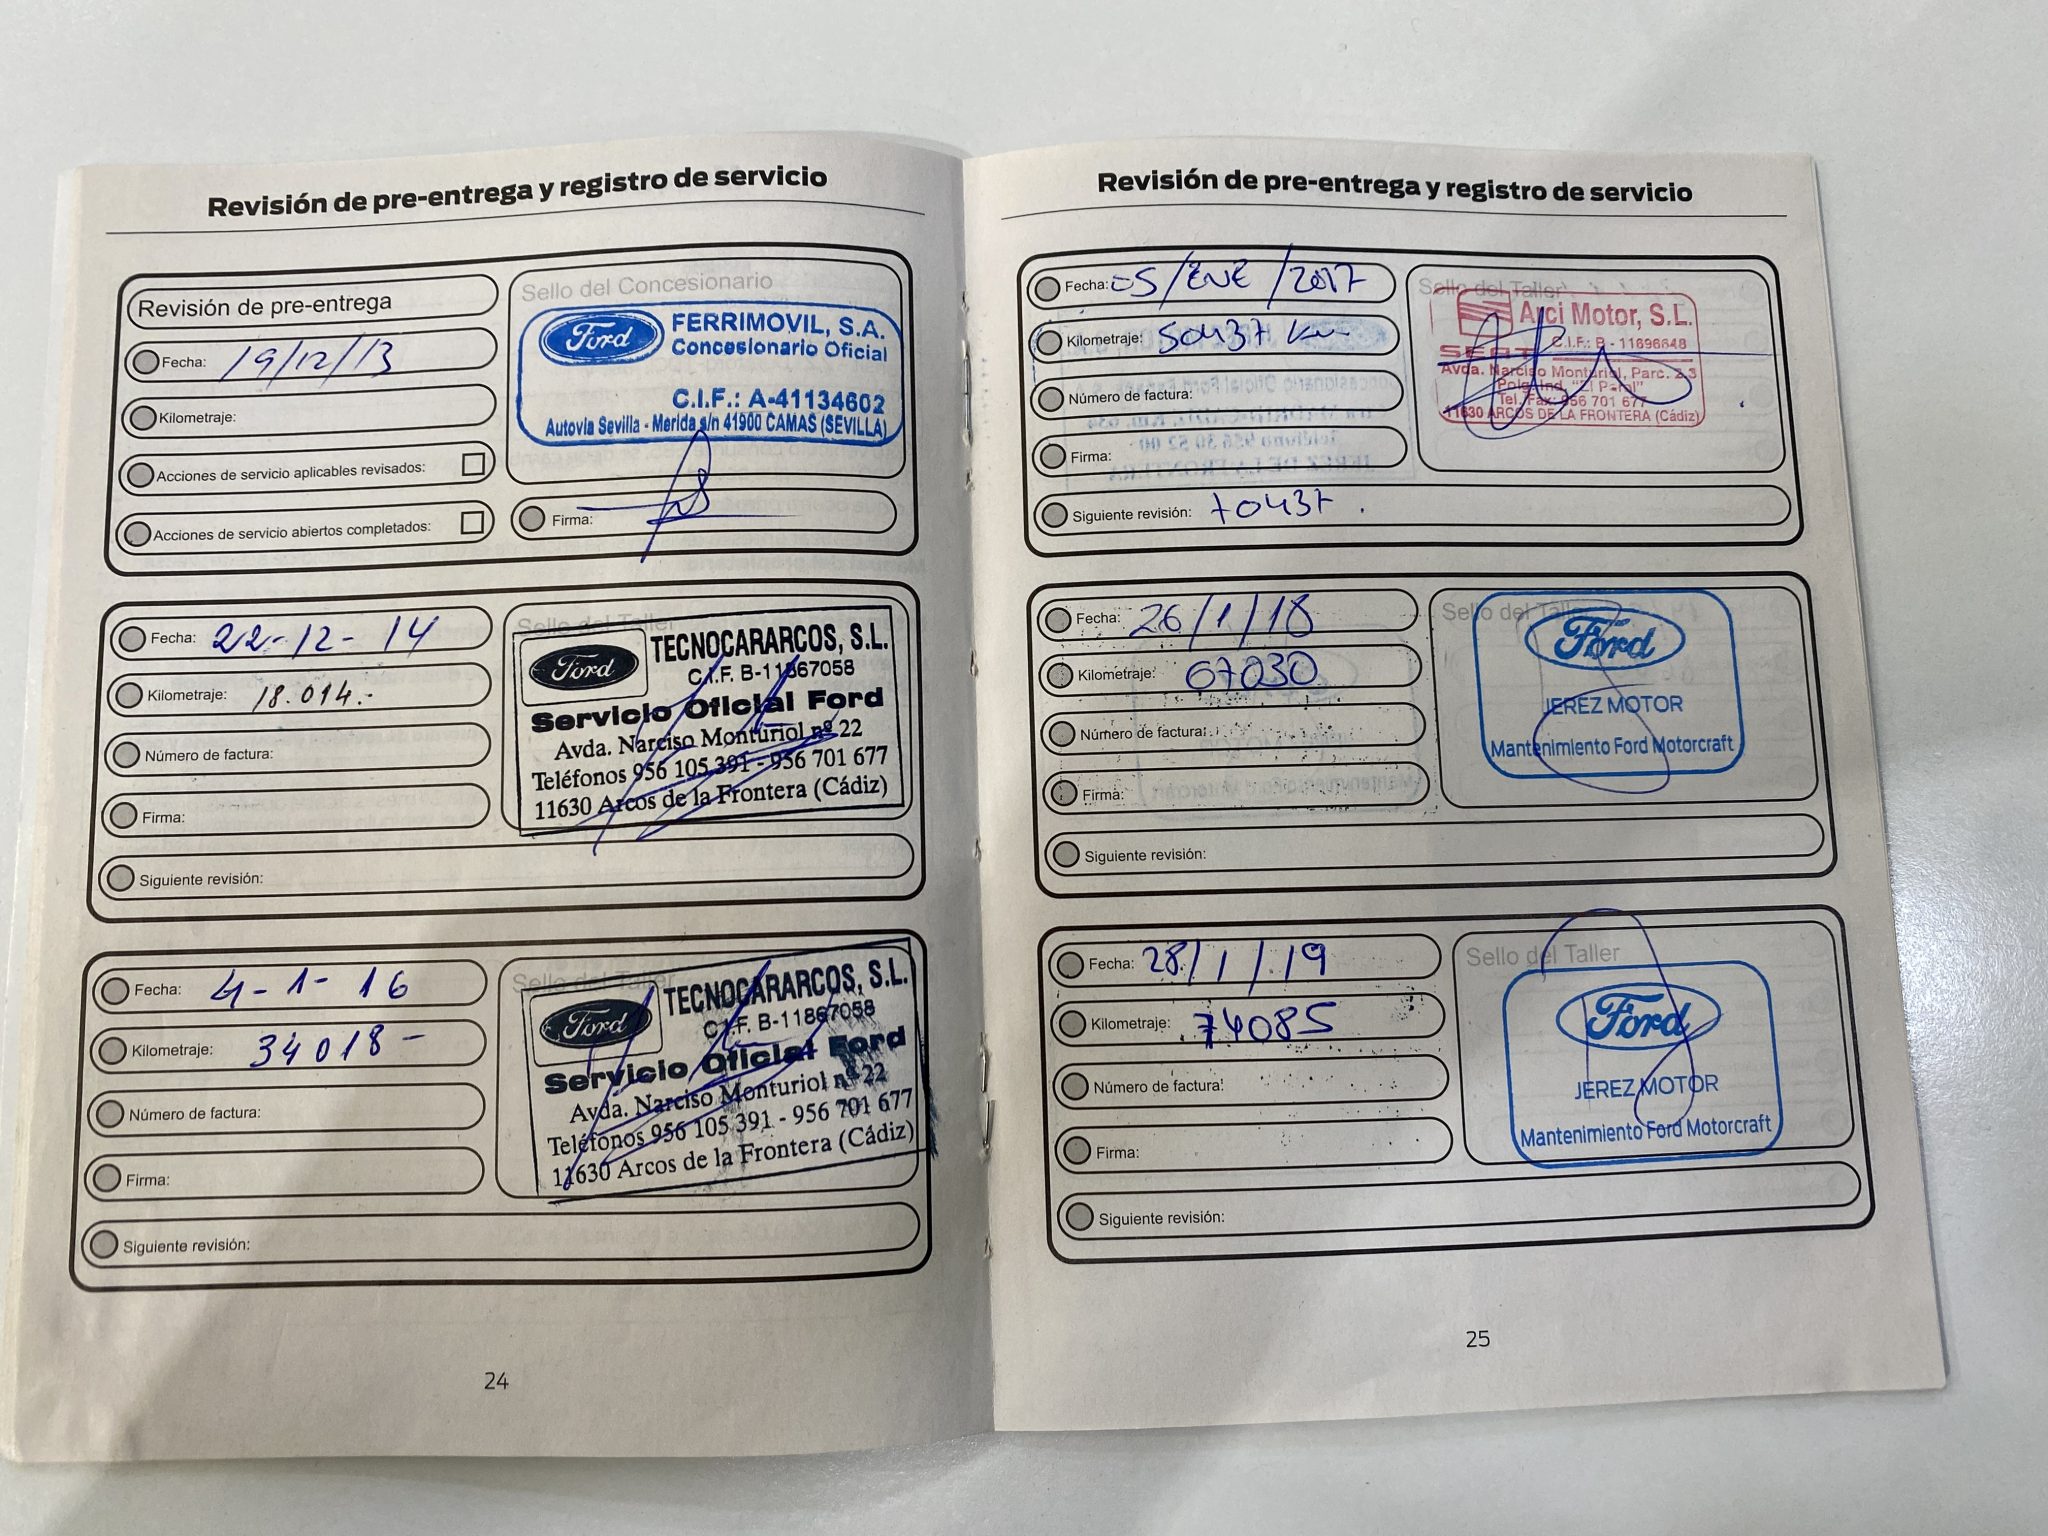 Revisión de pre-entrega y registro de servicio
Revisión de pre-entrega
Fecha: 19/12/13
Kilometraje:
Acciones de servicio aplicables revisados:
Acciones de servicio abiertos completados:
Sello del Concesionario
Ford
FERRIMOVIL, S.A.
Concesionario Oficial
C.I.F.: A-41134602
Autovia Sevilla - Merida s/n 41900 CAMAS (SEVILLA)
Firma:
Fecha: 22-12-14
Kilometraje: 18.014.-
Número de factura:
Firma:
Siguiente revisión:
Sello del Taller
Ford
TECNOCARARCOS, S.L.
C.I.F. B-11867058
Servicio Oficial Ford
Avda. Narciso Monturiol nº 22
Teléfonos 956 105 391 - 956 701 677
11630 Arcos de la Frontera (Cádiz)
Fecha: 4-1-16
Kilometraje: 34018-
Número de factura:
Firma:
Siguiente revisión:
Sello del Taller
Ford
TECNOCARARCOS, S.L.
C.I.F. B-11867058
Servicio Oficial Ford
Avda. Narciso Monturiol nº 22
Teléfonos 956 105 391 - 956 701 677
11630 Arcos de la Frontera (Cádiz)
24
Revisión de pre-entrega y registro de servicio
Fecha: 05/ENE/2017
Kilometraje: 50437 Km
Número de factura:
Firma:
Siguiente revisión: 70437.
Sello del Taller
Arci Motor, S.L.
SEAT
C.I.F.: B - 11696648
Avda. Narciso Monturiol, Parc. 2.3
Polg. Ind. "El Peral"
Tel./Fax: 956 701 677
11630 ARCOS DE LA FRONTERA (Cádiz)
Fecha: 26/1/18
Kilometraje: 67030
Número de factura:
Firma:
Siguiente revisión:
Sello del Taller
Ford
JEREZ MOTOR
Mantenimiento Ford Motorcraft
Fecha: 28/1/19
Kilometraje: 74085
Número de factura:
Firma:
Siguiente revisión:
Sello del Taller
Ford
JEREZ MOTOR
Mantenimiento Ford Motorcraft
25